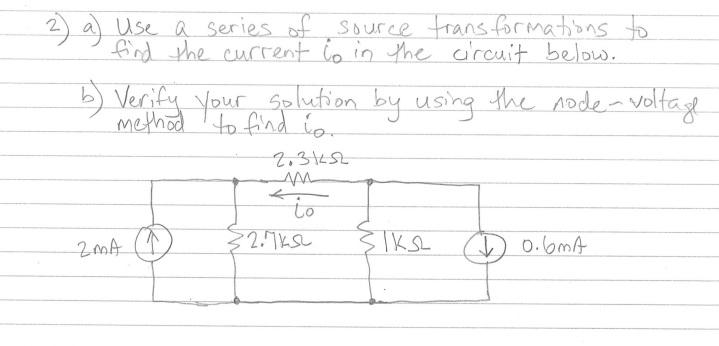 2) a) Use a series of source transformations to
find the current io in the circuit below.
b) Verify your solution by using the node-voltage
method to find io.
2.3kΩ
io
2mA
2.7kΩ
1KΩ
0.6mA